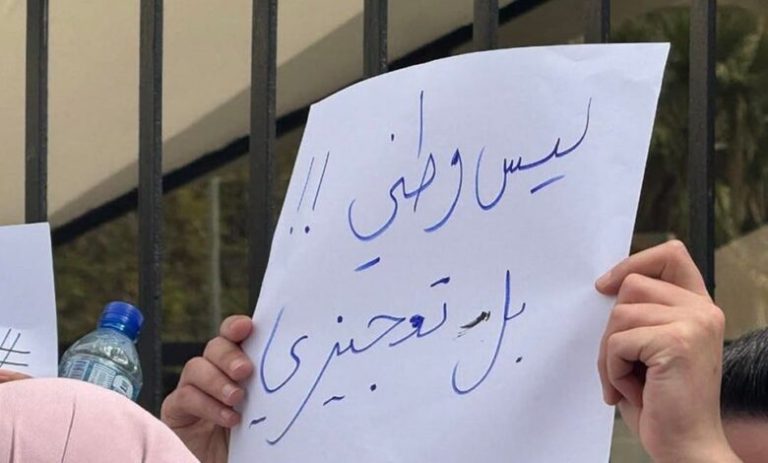 ليس وطني !!!
بل توجيزي
#